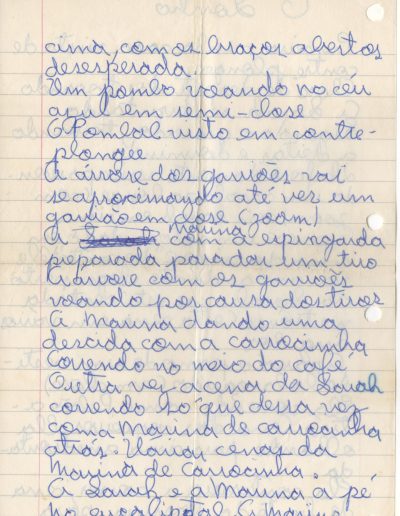 cima, com os braços abertos
desesperada.
Um pombo voando no céu
azul em semi-close
O Pombal visto em contre-
plongée
A árvore dos gaviões vai
se aproximando até ver um
gavião em close (zoom)
Marina
A Sarah com a espingarda
preparada para dar um tiro
A árvore com os gaviões
voando por causa dos tiros
A Marina dando uma
descida com a carrocinha
Correndo no meio do café
Outra vez a cena da Sarah
correndo só que dessa vez
com a Marina de carrocinha
atrás. Várias cenas da
Marina de Carrocinha.
A Sarah e a Marina a pé
no eucaliptal. A Marina